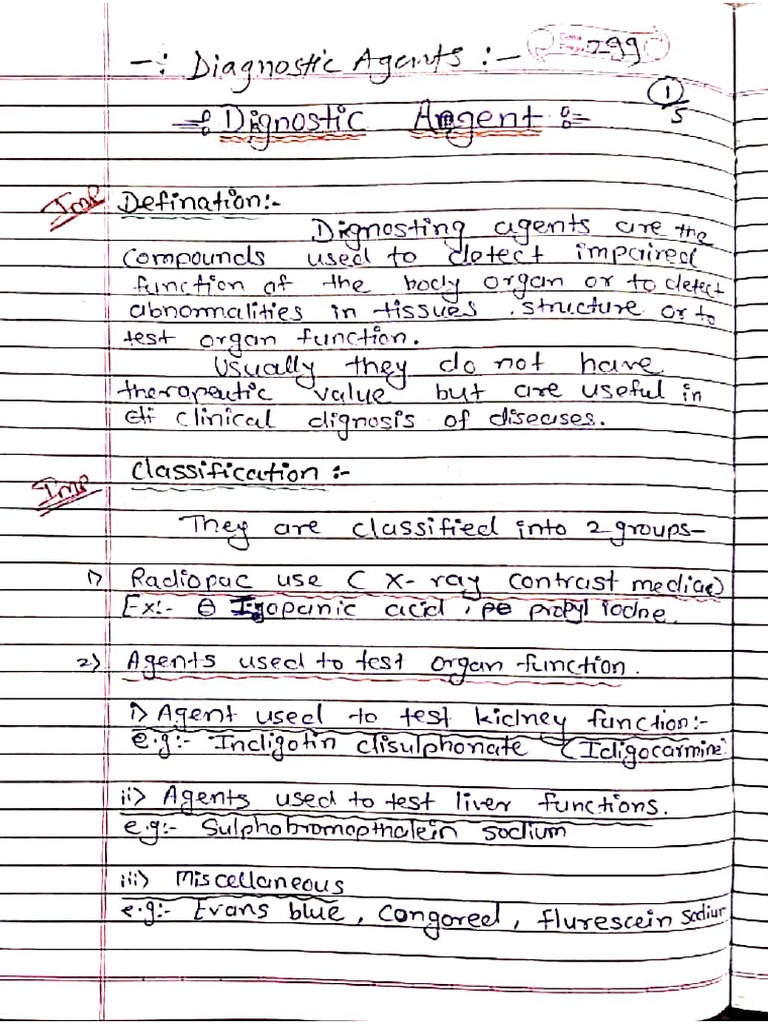 -: Diagnostic Agents :-
299
1/5
Dignostic Angent
Imp Defination:-
Dignosting agents are the
compounds used to detect impaired
function of the body organ or to detect
abnormalities in tissues, structure or to
test organ function.
Usually they do not have
therapeutic value but are useful in
clinical dignosis of diseases.
Imp Classification :-
They are classified into 2 groups-
1) Radiopac use ( X-ray contrast mediae)
Ex:- Iopanic acid, propyl iodne.
2) Agents used to test organ function.
i) Agent used to test kidney function:-
e.g:- Indigotin disulphonate (Idigocarmine)
ii) Agents used to test liver functions.
e.g:- Sulphobromopthalein sodium
iii) Miscellaneous
e.g:- Evans blue, Congored, flurescein sodium